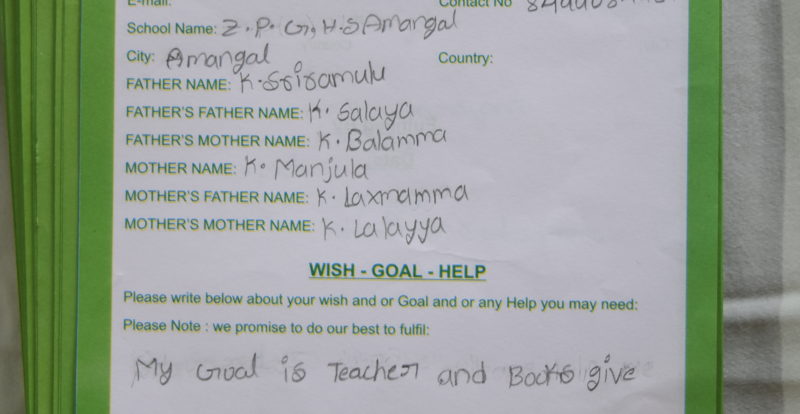 E-mail: Contact No
School Name: Z.P.G,H.S Amangal
City: Amangal Country:
FATHER NAME: K.Sriramulu
FATHER'S FATHER NAME: K. Salaya
FATHER'S MOTHER NAME: K. Balamma
MOTHER NAME: K. Manjula
MOTHER'S FATHER NAME: K. Laxmamma
MOTHER'S MOTHER NAME: K. Lalayya
WISH - GOAL - HELP
Please write below about your wish and or Goal and or any Help you may need:
Please Note : we promise to do our best to fulfil:
My Goal is Teacher and Books give